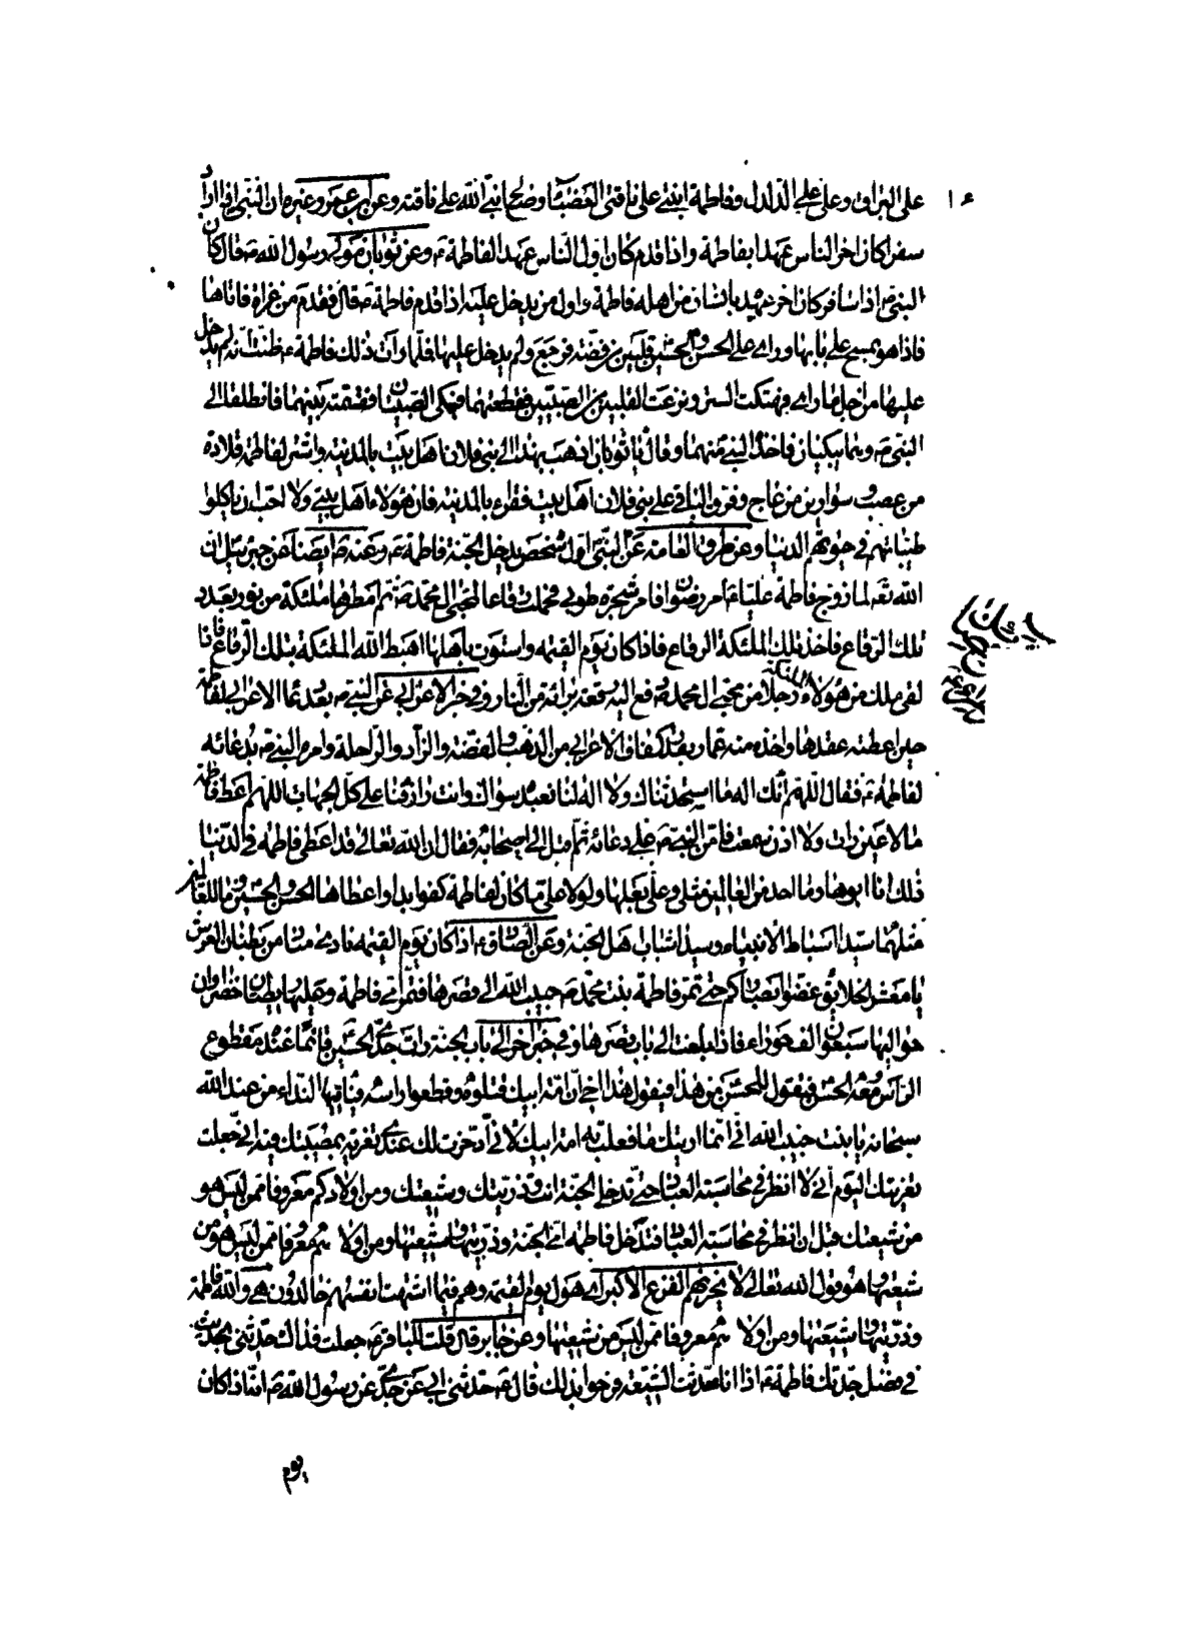 على البراق وعلى على الدلدل وفاطمة ابنتى على ناقتى العضباء وصالح نبى الله على ناقته وعن ابن عمر وغيره ان النبى اذا اراد
سفرا كان اخر الناس عهدا بفاطمة واذا قدم كان اول الناس عهدا لفاطمة ع وعن ثوبان مولى رسول الله ص قال كان
النبى ص اذا سافر كان اخر عهده بانسان من اهله فاطمة ع واول من يدخل عليه اذا قدم فاطمة ع قال فقدم من غزاة فاتاها
فاذا هو بمسح على بابها وراى على الحسن والحسين قلبين من فضة فرجع ولم يدخل عليها فلما رات ذلك فاطمة ع ظنت انه لم يدخل
عليها من اجل ما راى فهتكت الستر ونزعت القلبين من الصبيين فقطعتهما فبكى الصبيان فقسمته بينهما فانطلقا الى
النبى ص وهما يبكيان فاخذ النبى منهما وقال يا ثوبان اذهب بهذا الى بنى فلان اهل بيت بالمدينة واشتر لفاطمة قلادة
من عصب و سوارين من عاج وفرق الباقى على بنى فلان اهل بيت فقراء بالمدينة فان هؤلاء اهل بيتى ولا احب ان ياكلوا
طيباتهم فى حيوتهم الدنيا وعن طرق العامة عن النبى اول شخص يدخل الجنة فاطمة ع وعنه ص ايضا عن جبرئيل ان
الله تعه لما زوج فاطمة عليا ع امر رضوان فامر شجرة طوبى فحملت رقاعا لمحبى ال محمد ص ثم امطرها ملئكة من نور بعدد
تلك الرقاع فاخذ تلك الملئكة الرقاع فاذا كان يوم القيمه واستوت باهلها اهبط الله الملئكة بتلك الرقاع فاذا
لقى ملك من هؤلاء الملئكة رجلا من محبى ال محمد دفع اليه رقعة برائة من النار وفى خبر الاعرابى عن النبى ص بعد دعا الاعرابى لفاطمة
حين اعطته عقدها واخذه منه عمار بعد كفاف الاعرابى من الذهب والفضة والزاد والراحلة وامر النبى ص بدعائه
لفاطمة ع فقال اللهم انك اله ما استحدثناك ولا اله لنا نعبد سواك وانت رازقنا على كل الجهات اللهم اعط فاطمة
ما لا عين رات ولا اذن سمعت فامن النبى ص على دعائه ثم اقبل الى اصحابه فقال ان الله تعالى قد اعطى فاطمة فى الدنيا
ذلك انا ابوها وما احد من العالمين مثلى وعلى بعلها ولولا على ما كان لفاطمة كفو ابدا واعطاها الحسن والحسين وما للعالمين
مثلهما سيدا اسباط الانبياء وسيدا شباب اهل الجنة وعن الصادق ع اذا كان يوم القيمه نادى مناد من بطنان العرش
يا معشر الخلايق غضوا ابصاركم حتى تمر فاطمة بنت محمد ص حبيب الله الى قصرها فتمر انى فاطمة وعليها ريطتان خضراوان
حواليها سبعون الف حوراء فاذا بلغت الى باب قصرها وفى خبر اخر الى باب الجنة رات الحسين قائما عنده مقطوع
الراس معه الحسن فيقول للحسن من هذا فيقول هذا اخى ان امة ابيك قتلوه وقطعوا راسه فياتيها النداء من عند الله
سبحانه يا بنت حبيب الله انى انما اريتك ما فعلت به امة ابيك لانى ادخرت لك عندى تعزية بمصيبتك فيه انى جعلت
تعزيتك اليوم انى لا انظر فى محاسبة العباد حتى تدخل الجنة انت وذريتك وشيعتك ومن اولادكم معروفا ممن ليس هو
من شيعتك قبل ان انظر فى محاسبة العباد فتدخل فاطمة الجنة وذريتها وشيعتها ومن اولاهم معروفا ممن ليس هو من
شيعتها وهو قول الله تعالى لا يحزنهم الفزع الاكبر اى هول يوم القيمة وهم فيما اشتهت انفسهم خالدون هى والله فاطمة
وذريتها وشيعتها ومن اولاهم معروفا ممن ليس من شيعتها وعن جابر قال قلت للباقر ع جعلت فداك حدثنى بحديث
فى فضل جدتك فاطمة ع اذا انا حدثت الشيعة فرحوا بذلك قال ع حدثنى ابى عن جدى عن رسول الله ص انه اذا كان
يوم